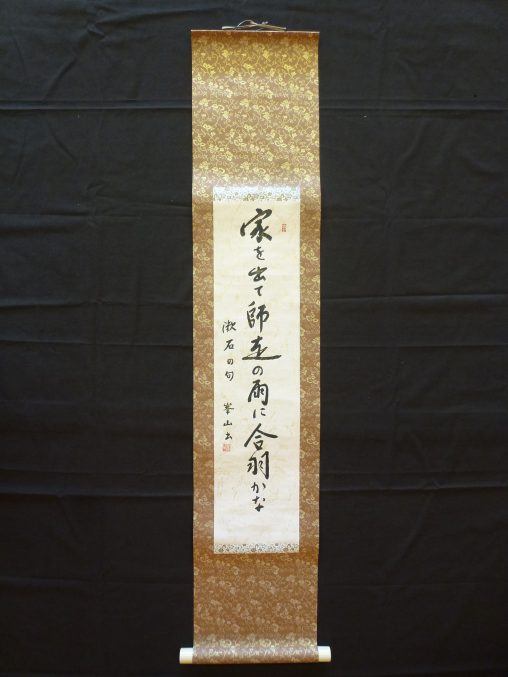 家を出て師走の雨に合羽かな
漱石の句　峯山書